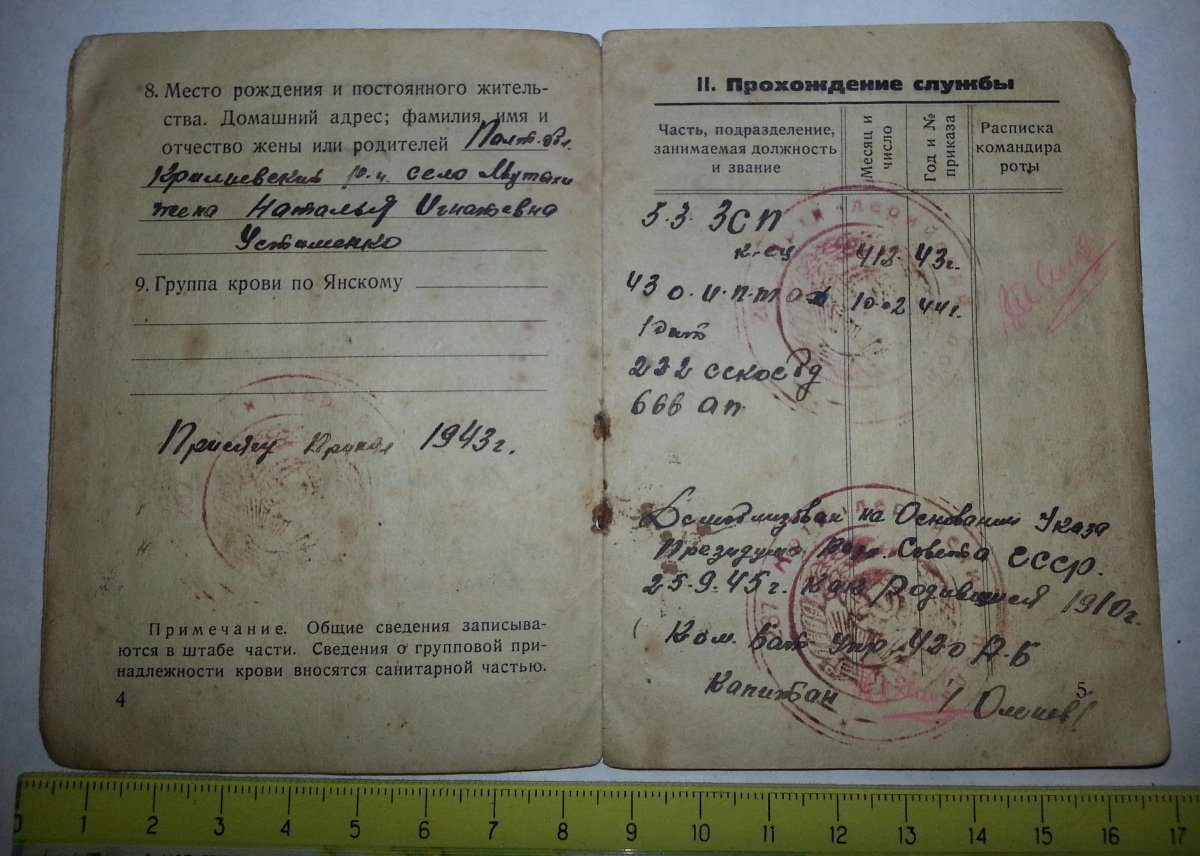 8. Место рождения и постоянного житель-
ства. Домашний адрес; фамилия, имя и
отчество жены или родителей Полт. обл.
село
жена Наталья Игнатевна
Устименко
9. Группа крови по Янскому
Присягу 1943 г.
Примечание. Общие сведения записыва-
ются в штабе части. Сведения о групповой при-
надлежности крови вносятся санитарной частью.
4
II. Прохождение службы
Часть, подразделение,
занимаемая должность
и звание
Месяц и
число
Год и №
приказа
Расписка
командира
роты
ЗСП
43 г.
43 о.и.п.т.д 10.02 44 г.
232
666 ап.
Демобилизован на Основании Указа
Президума Верх. Совета СССР.
25.9.45 г. как родившийся 1910 г.
Ком. бат. упр. 420
Капитан
5
0 1 2 3 4 5 6 7 8 9 10 11 12 13 14 15 16 17